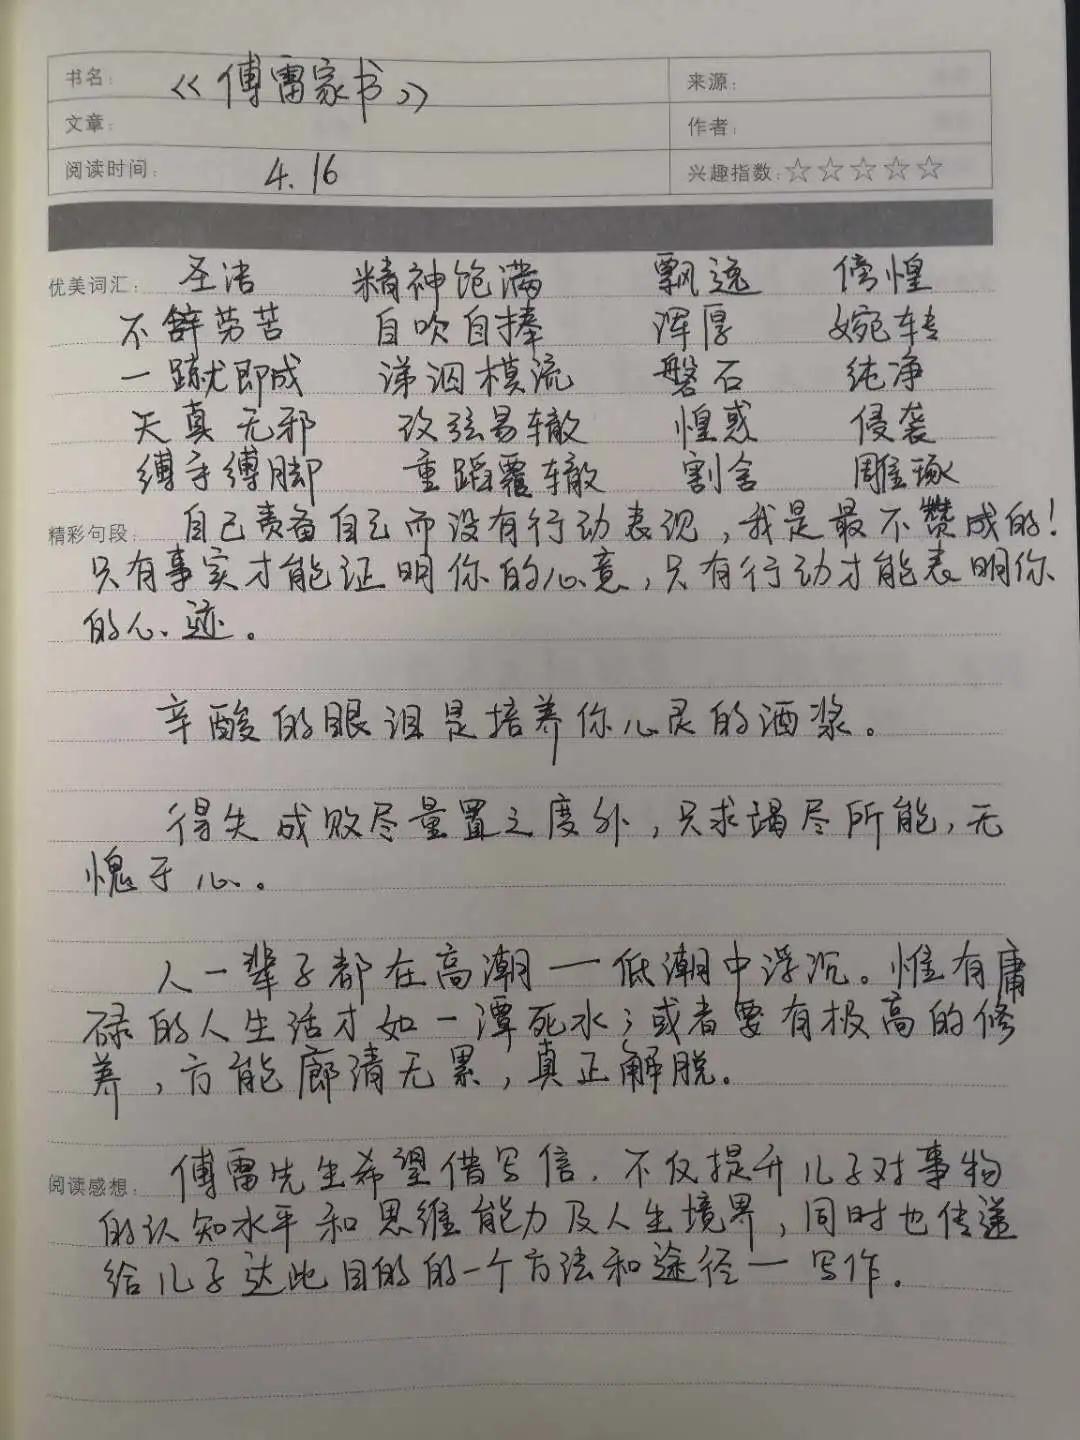 书名： 《傅雷家书》 来源：
文章： 作者：
阅读时间： 4.16 兴趣指数：☆☆☆☆☆
优美词汇： 圣洁 精神饱满 飘逸 傍惶
不辞劳苦 自吹自捧 浑厚 婉转
一蹴即成 涕泗横流 磐石 纯净
天真无邪 改弦易辙 惶惑 侵袭
缚手缚脚 重蹈覆辙 割舍 雕琢
精彩句段： 自己责备自己而没有行动表现，我是最不赞成的！
只有事实才能证明你的心意，只有行动才能表明你
的心迹。
辛酸的眼泪是培养你心灵的酒浆。
得失成败尽量置之度外，只求竭尽所能，无
愧于心。
人一辈子都在高潮一低潮中浮沉。惟有庸
碌的人生活才如一潭死水；或者要有极高的修
养，方能廓清无累，真正解脱。
阅读感想： 傅雷先生希望借写信，不仅提升儿子对事物
的认知水平和思维能力及人生境界，同时也传递
给儿子达此目的的一个方法和途径一写作。